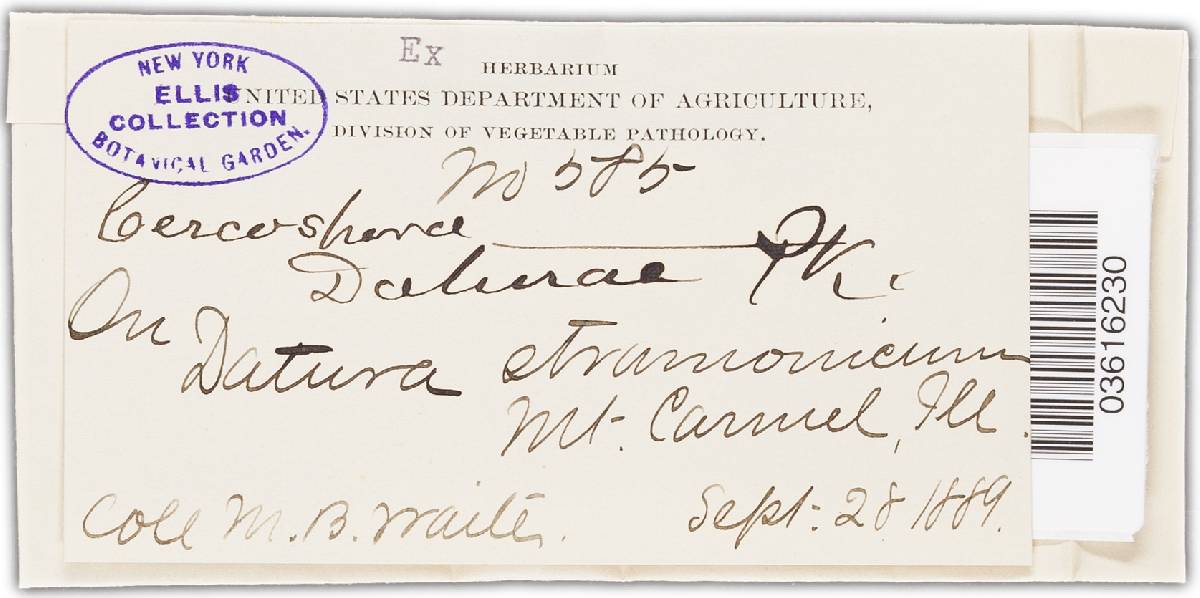 Ex
HERBARIUM
UNITED STATES DEPARTMENT OF AGRICULTURE,
DIVISION OF VEGETABLE PATHOLOGY.
NEW YORK
ELLIS
COLLECTION
BOTANICAL GARDEN.
No 585
Cercospora
Daturae PK.
On
Datura stramonicum
Mt. Carmel, Ill.
Coll M. B. Waite.
Sept. 28 1889.
03616230